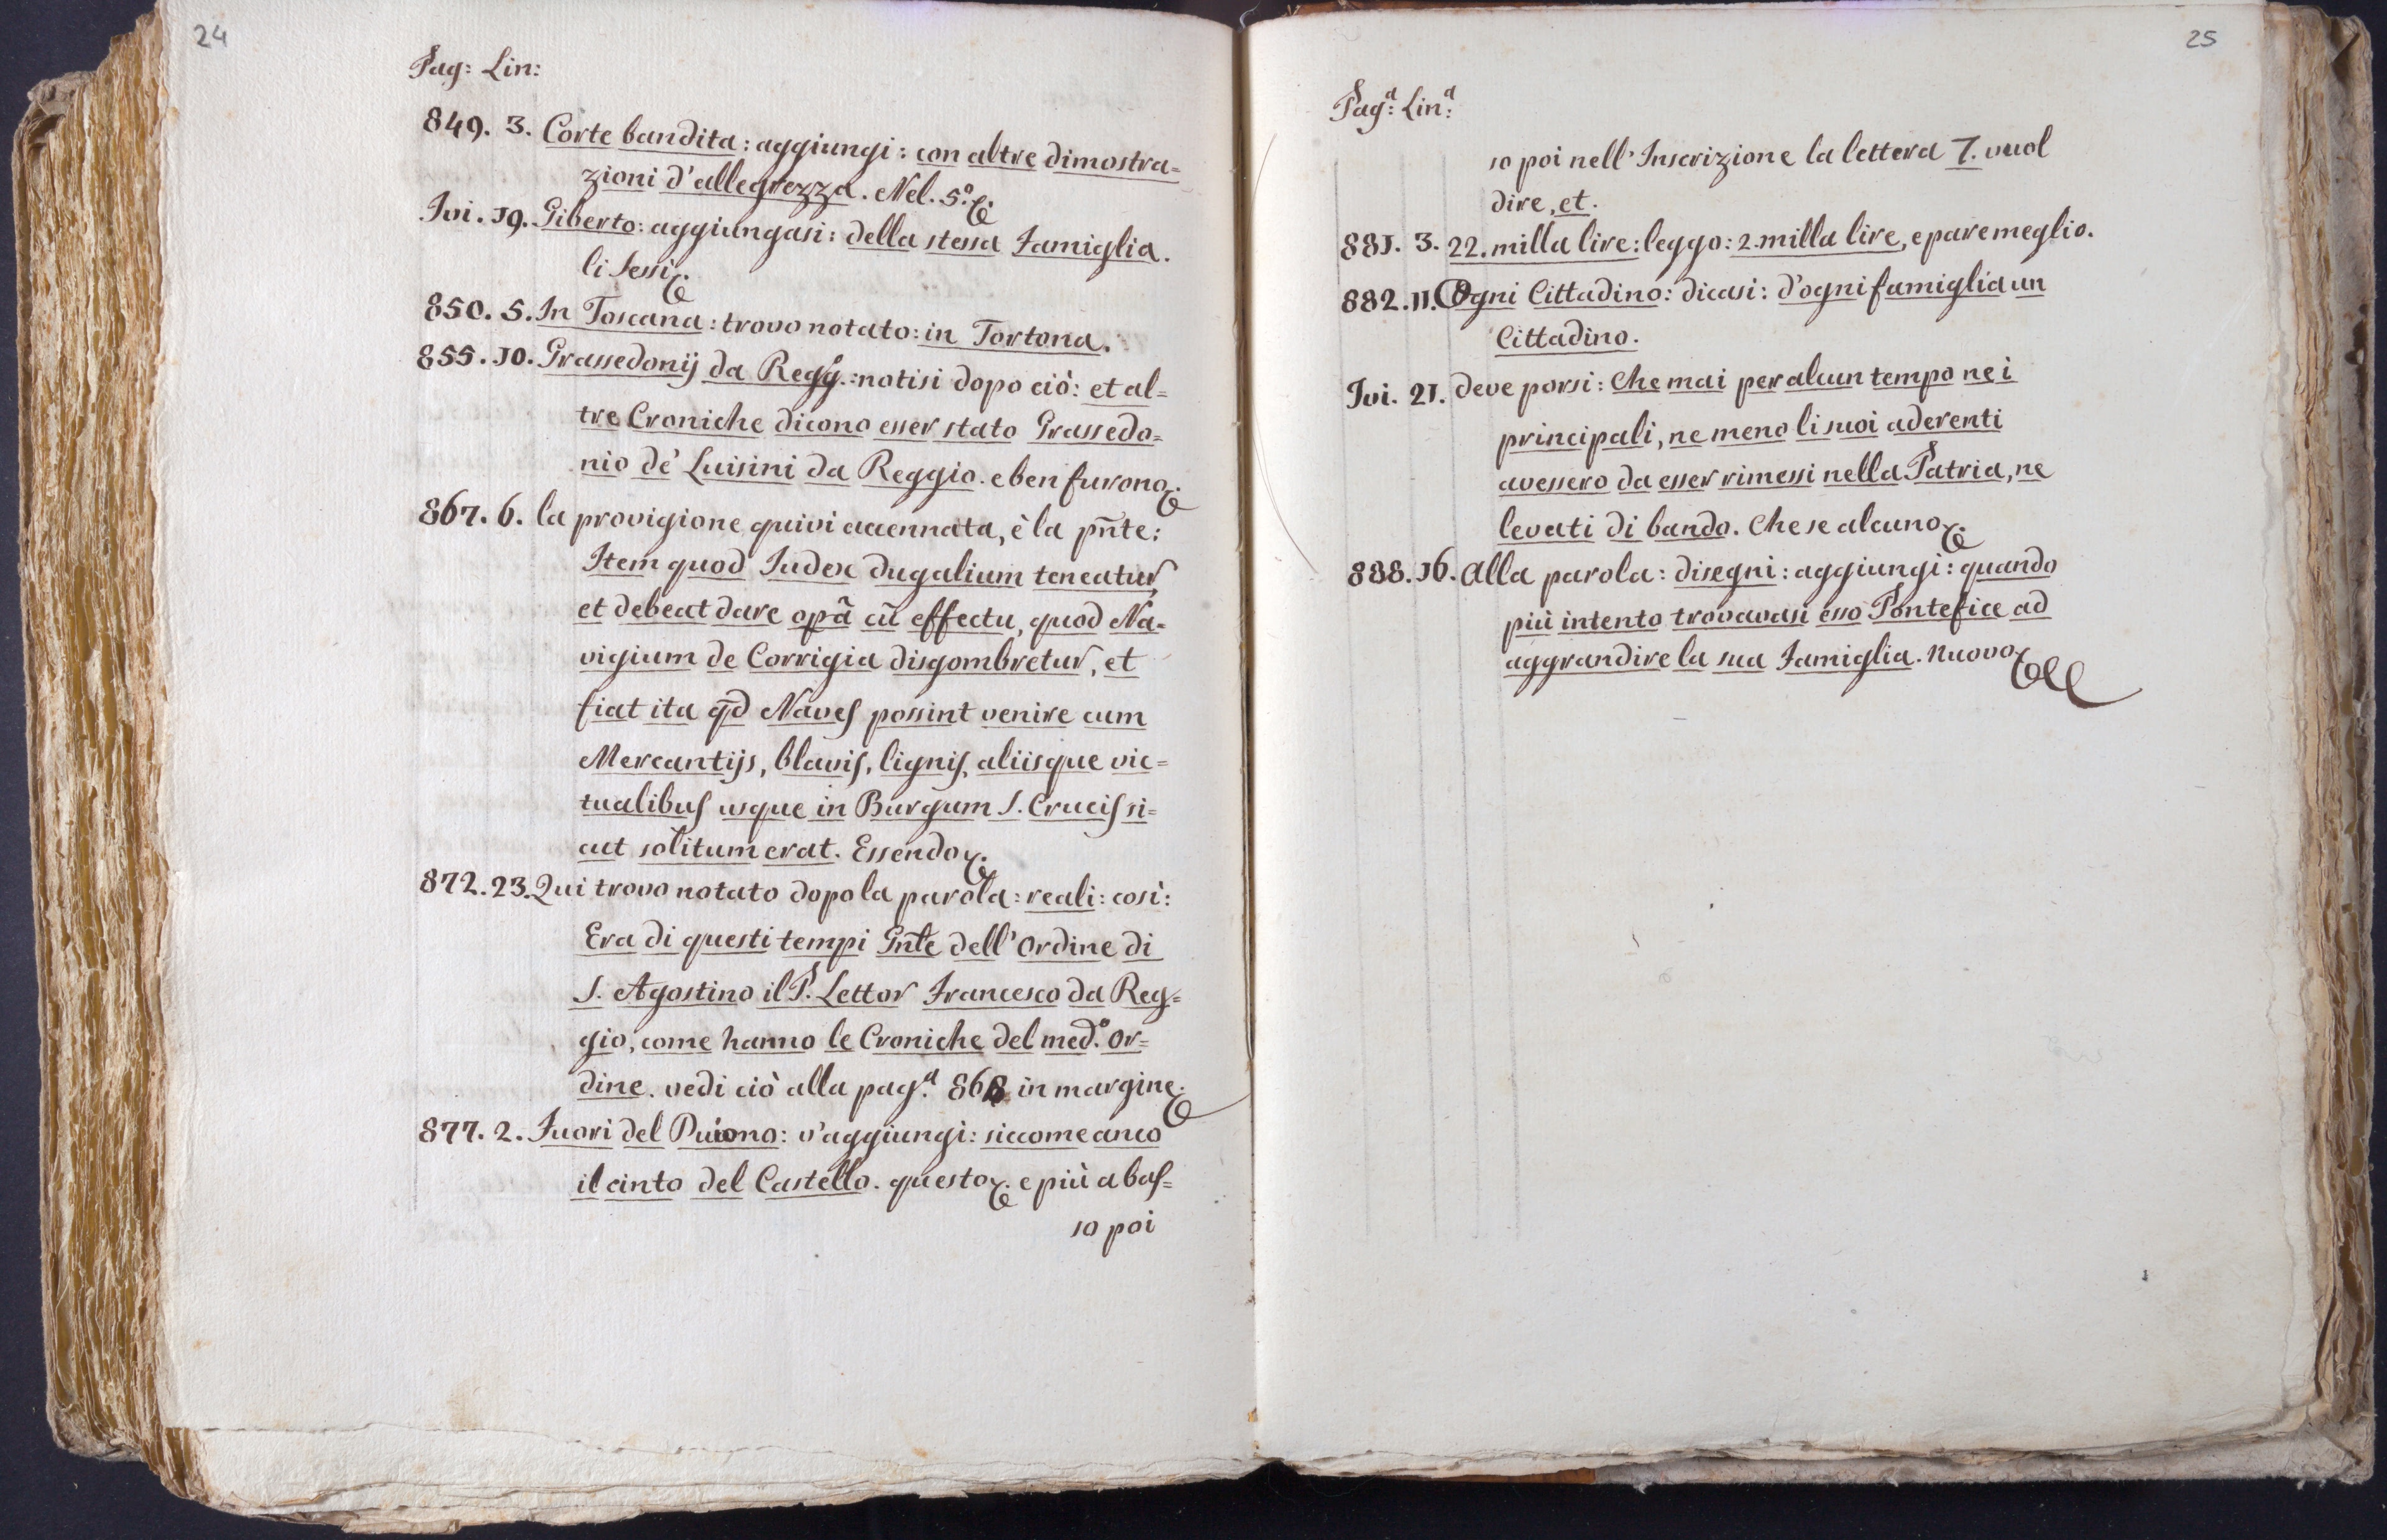 24
Pag: Lin:
849. 3. Corte bandita: aggiungi: con altre dimostra=
zioni d'allegrezza. Nel. 5.º &.
Ivi. 19. Giberto: aggiungasi: della stessa Famiglia.
li Sessi &.
850. 5. In Toscana: trovo notato: in Tortona.
855. 10. Grassedonij da Regg.º: notisi dopo ciò: et al=
tre Croniche dicono esser stato Grassedo=
nio de' Luisini da Reggio. e ben furono &.
867. 6. la provigione quivi accennata, è la pñte:
Item quod Iudex dugalium teneatur,
et debeat dare opã cũ effectu, quod Na=
vigium de Corrigia disgombretur, et
fiat ita qd̄ Naves possint venire cum
Mercantijs, blavis, lignis, aliisque vic=
tualibus usque in Burgum S. Crucis si=
cut solitum erat. Essendo &.
872. 23. Qui trovo notato dopo la parola: reali: così:
Era di questi tempi Gñle dell'Ordine di
S. Agostino il P. Lettor Francesco da Reg=
gio, come hanno le Croniche del med.º Or=
dine. vedi ciò alla pag.ª 868 in margine. &
877. 2. Fuori del Duiomo: v'aggiungi: siccome anco
il cinto del Castello. questo &. e più a bas=
so poi
25
Pag.ª: Lin.ª:
so poi nell'Inscrizione la lettera 7. vuol
dire, et.
881. 3. 22. milla lire: leggo: 2. milla lire, e pare meglio.
882. 11. Ogni Cittadino: dicasi: d'ogni famiglia un
Cittadino.
Ivi. 21. deve porsi: Che mai per alcun tempo ne i
principali, ne meno li suoi aderenti
avessero da esser rimessi nella Patria, ne
levati di bando. Che se alcuno &.
888. 16. Alla parola: disegni: aggiungi: quando
più intento trovavasi esso Pontefice ad
aggrandire la sua Famiglia. Nuovo &.